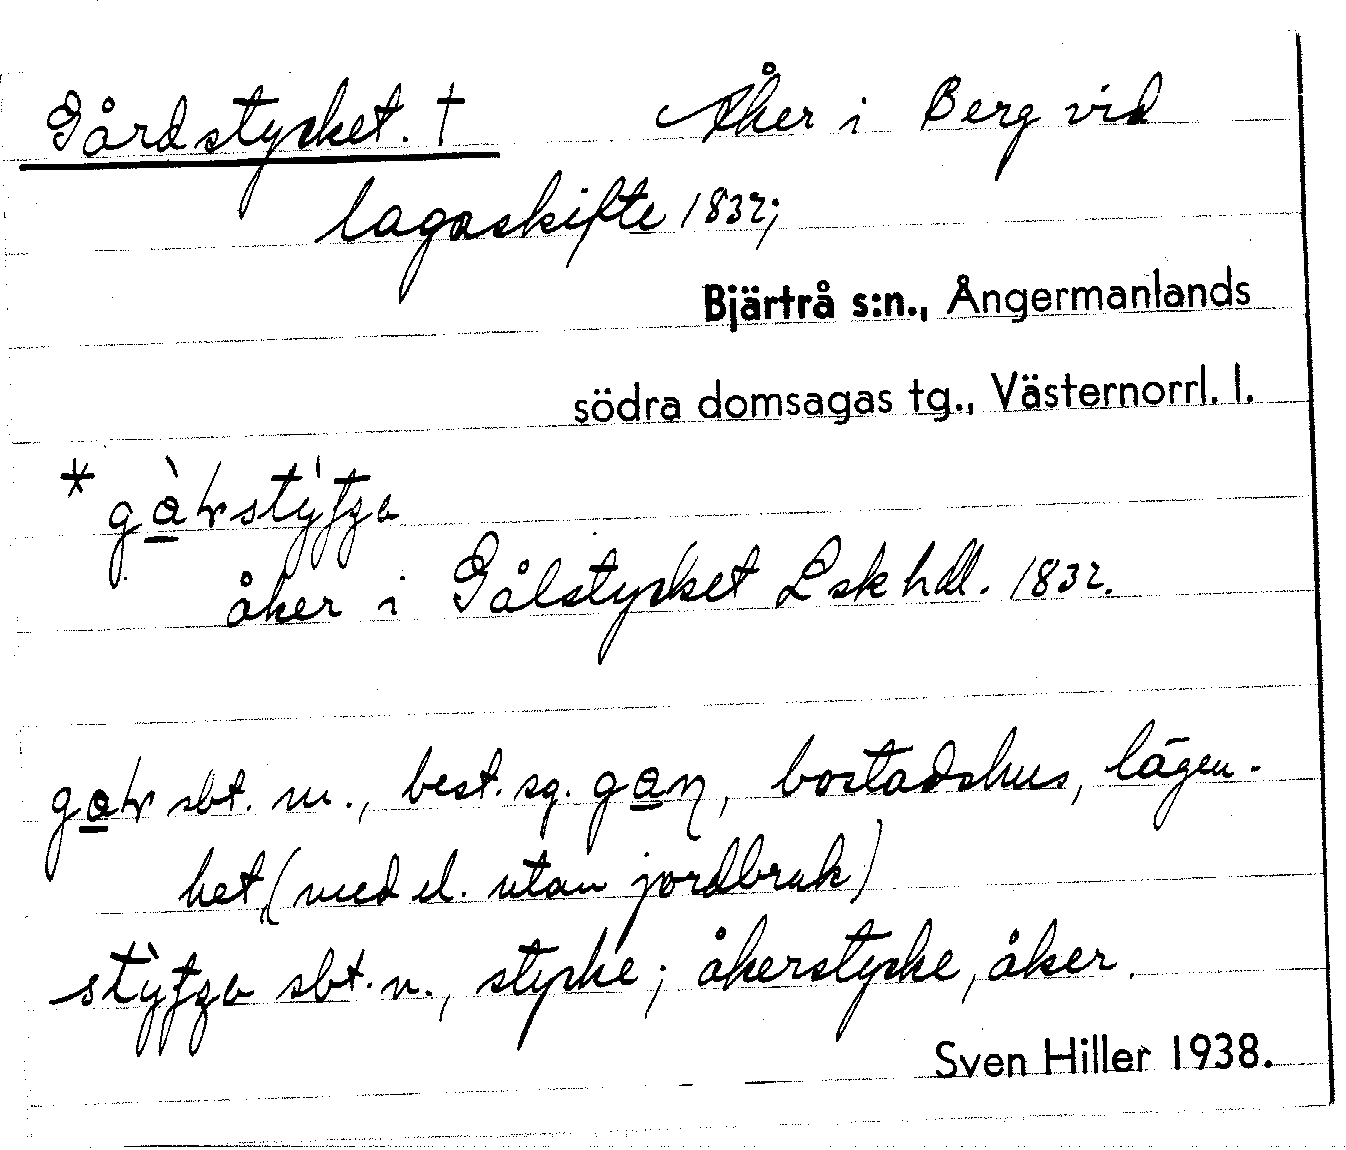 Gårdstycket. † Åker i Berg vid
lagaskifte 1832;
Bjärtrå s:n., Ångermanlands
södra domsagas tg., Västernorrl. l.
åker i Gålstycket Lskhdl. 1832.
sbt. m., best. sg. bostadshus, lägen-
het (med el. utan jordbruk)
sbt. n., stycke; åkerstycke, åker.
Sven Hiller 1938.